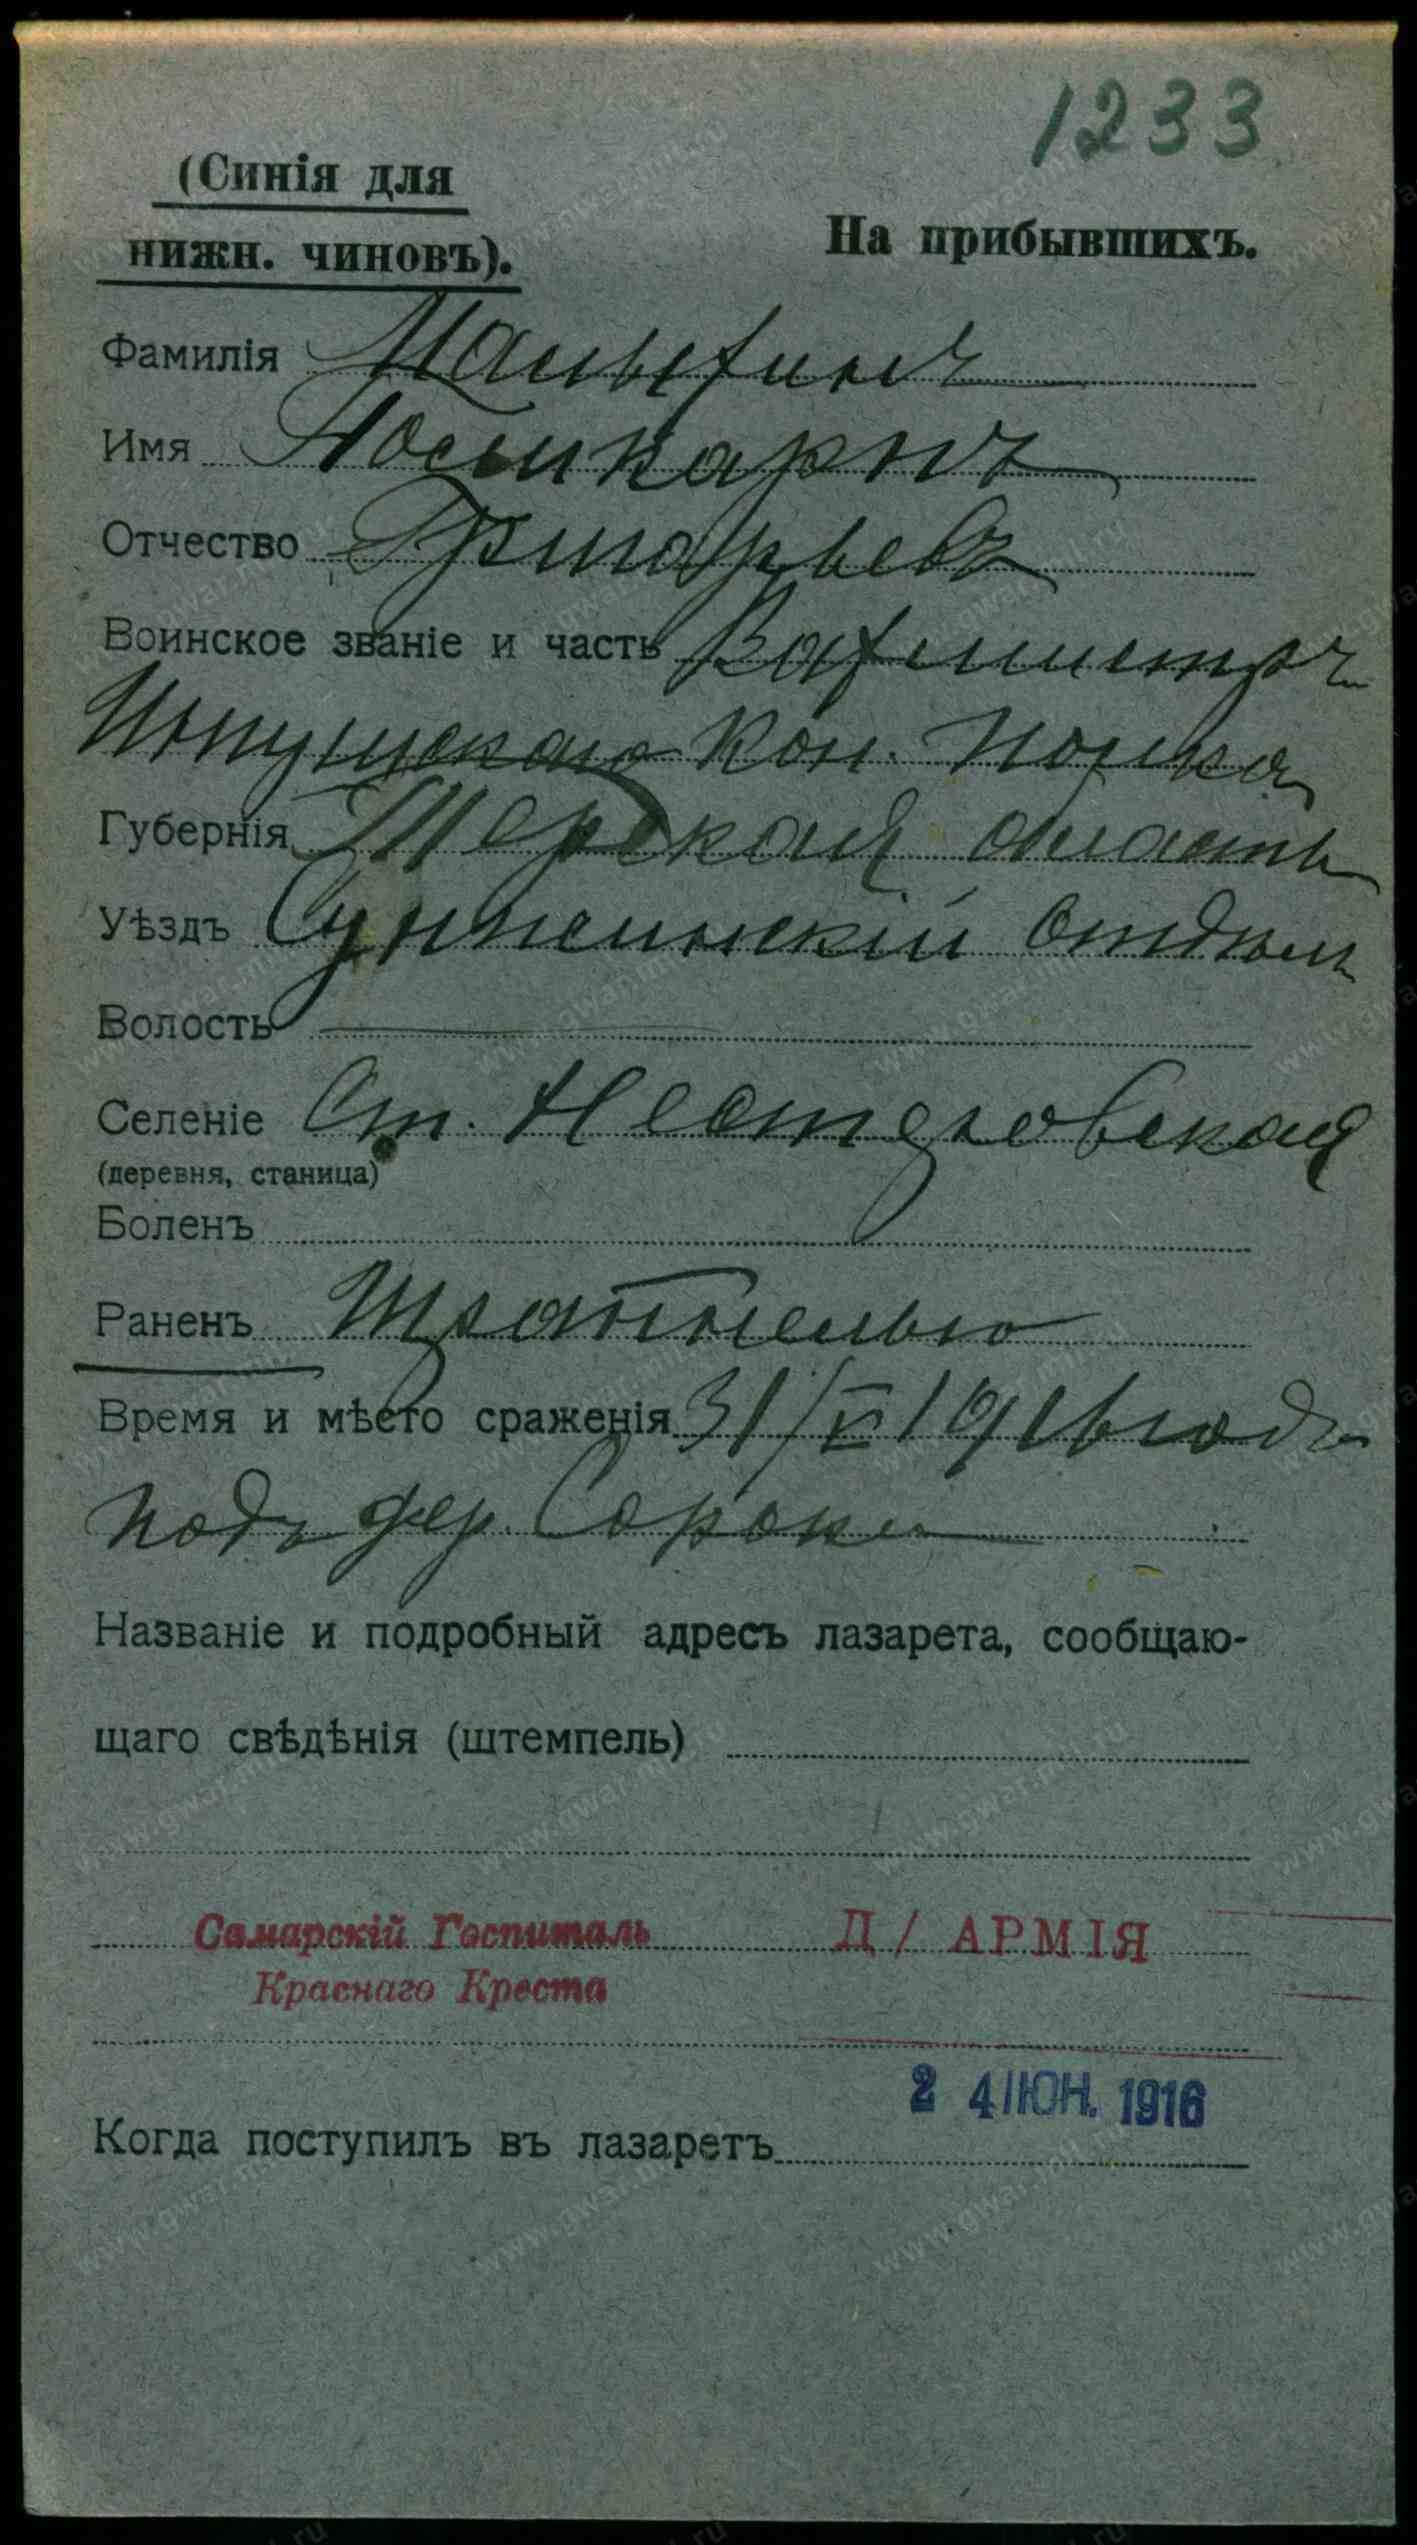 1233
(Синія для
нижн. чиновъ).
На прибывшихъ.
Фамилія
Имя Поликарпъ
Отчество Григорьевъ
Воинское званіе и часть Вахмистръ
Ингушскаго Кон. полка
Губернія Терская область
Уѣздъ Сунженскій отдѣлъ
Волость
Селеніе Ст. Нестеровская
(деревня, станица)
Боленъ
Раненъ Шрапнелью
Время и мѣсто сраженія 31/V 1916 годъ
подъ дер. Сороки
Названіе и подробный адресъ лазарета, сообщаю-
щаго свѣдѣнія (штемпель)
Самарскій Госпиталь Д/ АРМІЯ
Краснаго Креста
2 4 ІЮН. 1916
Когда поступилъ въ лазаретъ
www.gwar.mil.ru